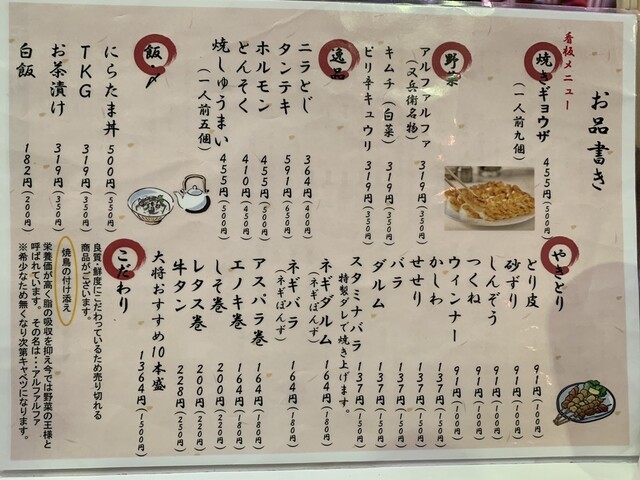 お品書き
看板メニュー
焼きギョウザ
(一人前九個)
455円(500円)
野菜
アルファルファ
(又兵衛名物)
319円(350円)
キムチ(白菜)
319円(350円)
ピリ辛キュウリ
319円(350円)
逸品
ニラとじ
364円(400円)
タンテキ
591円(650円)
ホルモン
455円(500円)
とんそく
410円(450円)
焼しゅうまい
(一人前五個)
455円(500円)
飯〆
にらたま丼
500円(550円)
TKG
319円(350円)
お茶漬け
319円(350円)
白飯
182円(200円)
やきとり
とり皮
91円(100円)
砂ずり
91円(100円)
しんぞう
91円(100円)
つくね
91円(100円)
ウィンナー
91円(100円)
かしわ
137円(150円)
せせり
137円(150円)
バラ
137円(150円)
ダルム
137円(150円)
スタミナバラ
137円(150円)
特製ダレで焼き上げます。
ネギダルム
(ネギぽんず)
164円(180円)
ネギバラ
(ネギぽんず)
164円(180円)
アスパラ巻
164円(180円)
エノキ巻
164円(180円)
しそ巻
200円(220円)
レタス巻
200円(220円)
牛タン
228円(250円)
大将おすすめ10本盛
1364円(1500円)
こだわり
良質、鮮度にこだわっているため売り切れる
商品がございます。
焼鳥の付け添え
栄養価が高く脂の吸収を抑え今では野菜の王様と
呼ばれています。その名は・・・アルファルファ
※希少なため無くなり次第キャベツになります。